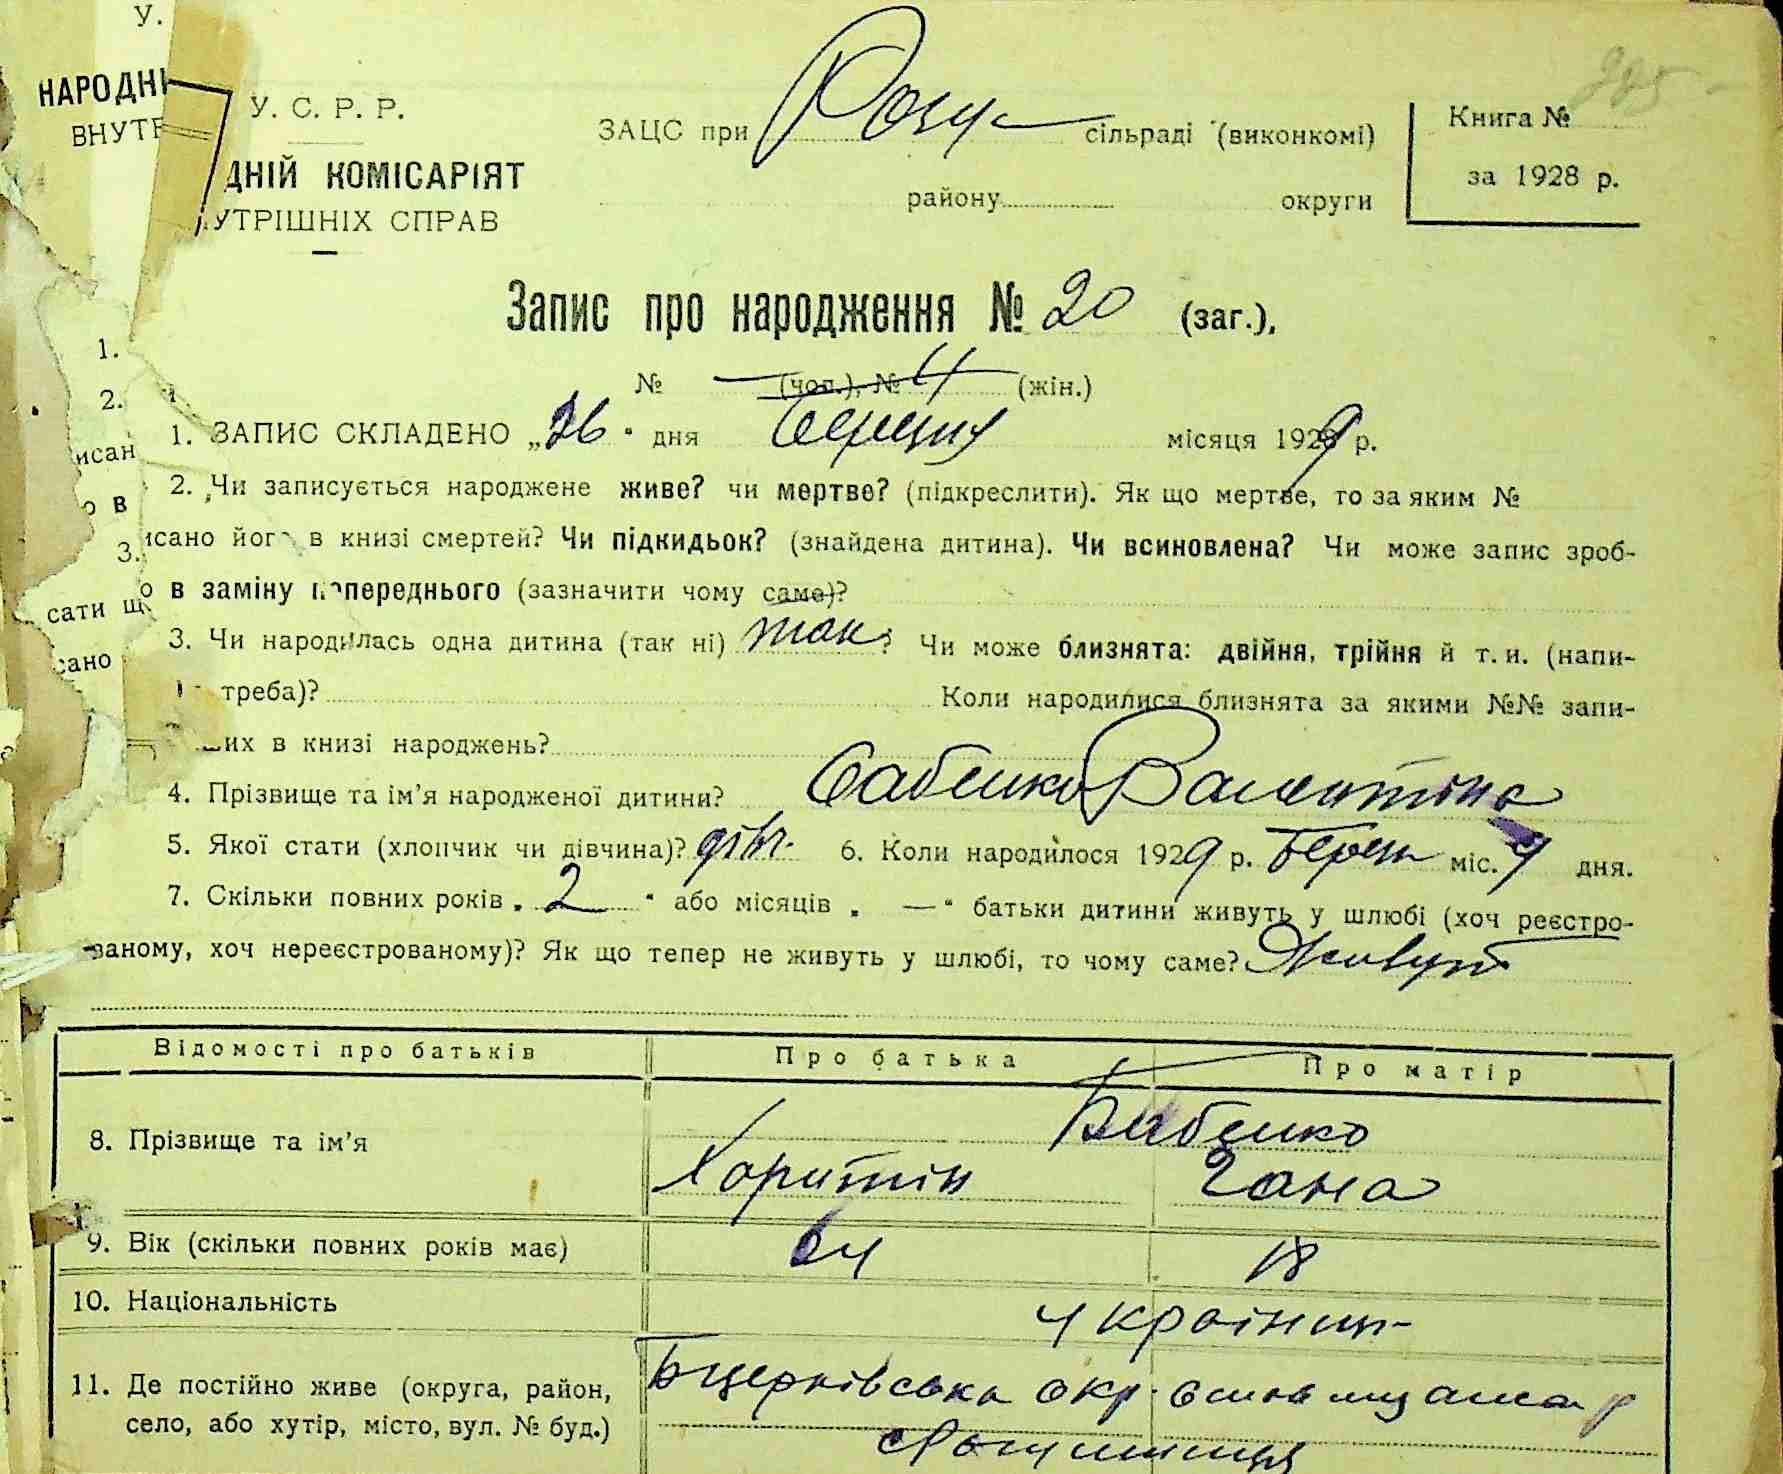 У.
НАРОДНІ
ВНУТР
У. С. Р. Р.
ДНІЙ КОМІСАРІЯТ
УТРІШНІХ СПРАВ
ЗАЦС при сільраді (виконкомі)
району округи
Книга №
за 1928 р.
Запис про народження № 20 (заг.),
№ — (чол.), № 4 (жін.)
1.
2.
1. ЗАПИС СКЛАДЕНО „26“ дня місяця 1929 р.
исан
2. Чи записується народжене живе? чи мертве? (підкреслити). Як що мертве, то за яким №
о в
исано його в книзі смертей? Чи підкидьок? (знайдена дитина). Чи всиновлена? Чи може запис зроб-
3.
о в заміну попереднього (зазначити чому саме)?
сати щ
3. Чи народилась одна дитина (так ні) так? Чи може близнята: двійня, трійня й т. и. (напи-
сано
треба)? Коли народилися близнята за якими №№ запи-
них в книзі народжень?
4. Прізвище та ім’я народженої дитини? Бабенко Валентіна
5. Якої стати (хлопчик чи дівчина)? дівч. 6. Коли народилося 1929 р. Берез міс. 9 дня.
7. Скільки повних років „2“ або місяців „—“ батьки дитини живуть у шлюбі (хоч реєстро-
ваному, хоч нереєстрованому)? Як що тепер не живуть у шлюбі, то чому саме? Живуть
Відомості про батьків Про батька Про матір
8. Прізвище та ім’я Бабенко
Харитін Гана
9. Вік (скільки повних років має) 24 18
10. Національність україн
11. Де постійно живе (округа, район, Бцерківська окр.
село, або хутір, місто, вул. № буд.)